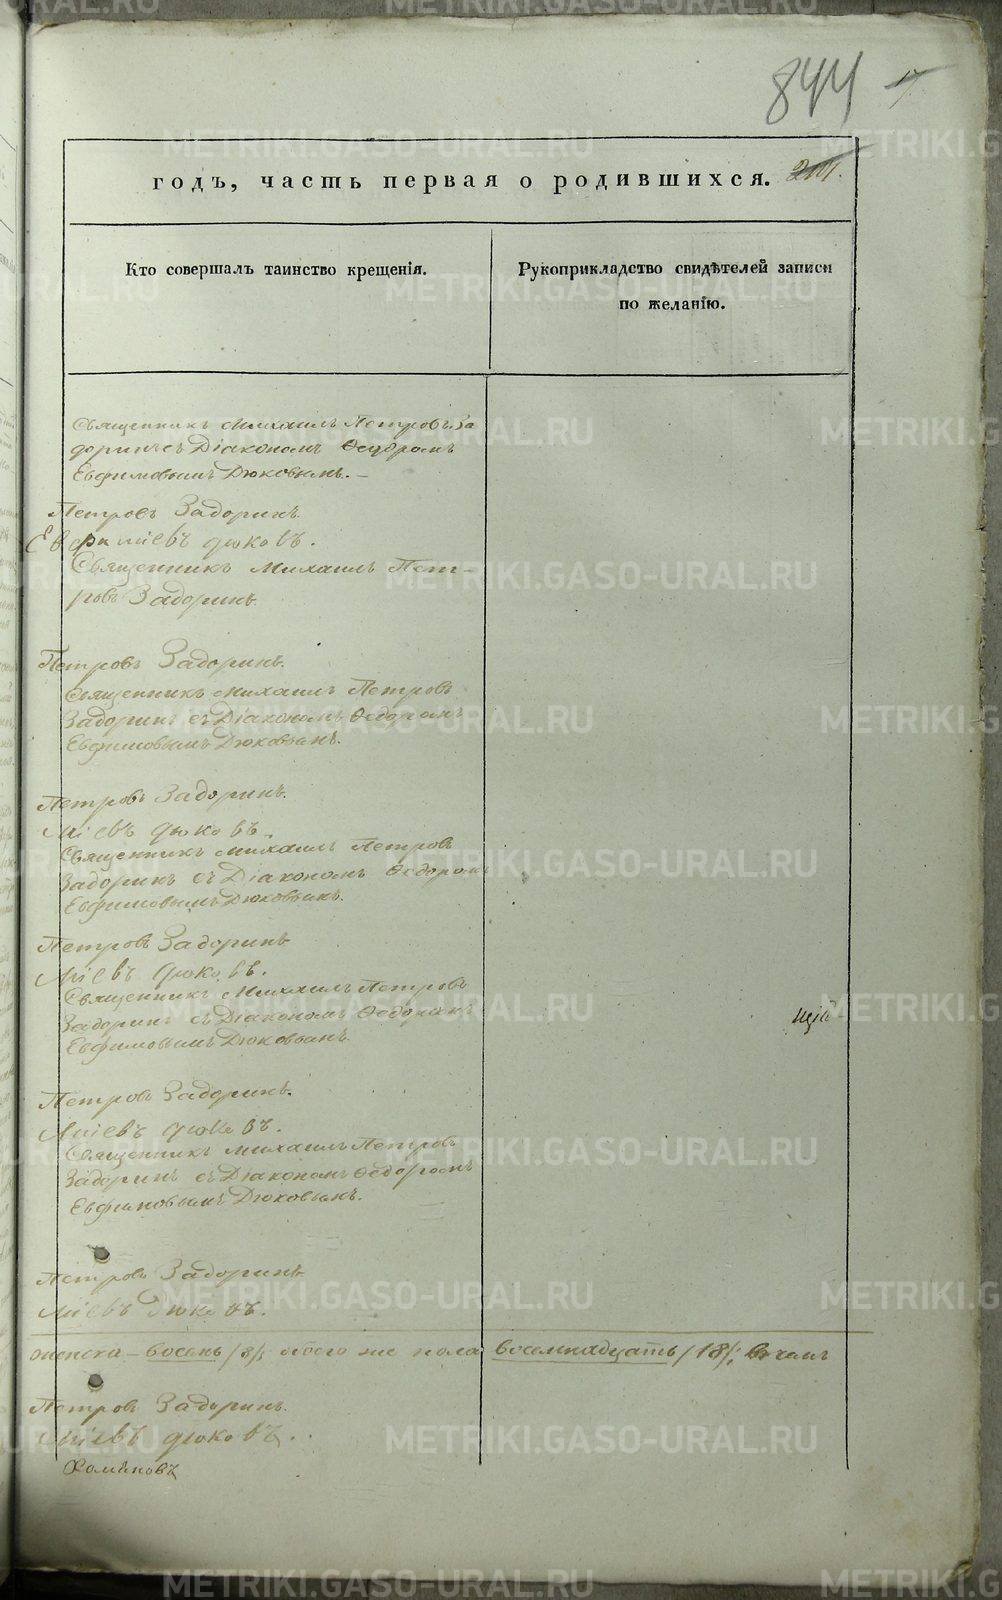 844
17
годъ, часть первая о родившихся. 201.
Кто совершалъ таинство крещенія.
Рукоприкладство свидѣтелей записи
по желанію.
Священникъ Михаилъ Петровъ За
доринъ съ Діакономъ Ѳедоромъ
Евфимовымъ Дюковымъ. —
Петровъ Задоринъ.
Евфиміевъ Дюковъ.
Священникъ Михаилъ Пет-
ровъ Задоринъ.
Петровъ Задоринъ.
Священникъ Михаилъ Петровъ
Задоринъ съ Діакономъ Ѳедоромъ
Евфимовымъ Дюковымъ.
Петровъ Задоринъ.
міевъ Дюковъ.
Священникъ Михаилъ Петровъ
Задоринъ съ Діакономъ Ѳедоромъ
Евфимовымъ Дюковымъ.
Петровъ Задоринъ
міевъ Дюковъ.
Священникъ Михаилъ Петровъ
Задоринъ съ Діакономъ Ѳедоромъ
Евфимовымъ Дюковымъ.
Петровъ Задоринъ.
міевъ Дюковъ.
Священникъ Михаилъ Петровъ
Задоринъ съ Діакономъ Ѳедоромъ
Евфимовымъ Дюковымъ.
Петровъ Задоринъ
міевъ Дюковъ.
женска – восемь /8/, обоего же пола восемнадцать /18/; въ чемъ
Петровъ Задоринъ.
міевъ Дюковъ.
METRIKI.GASO-URAL.RU